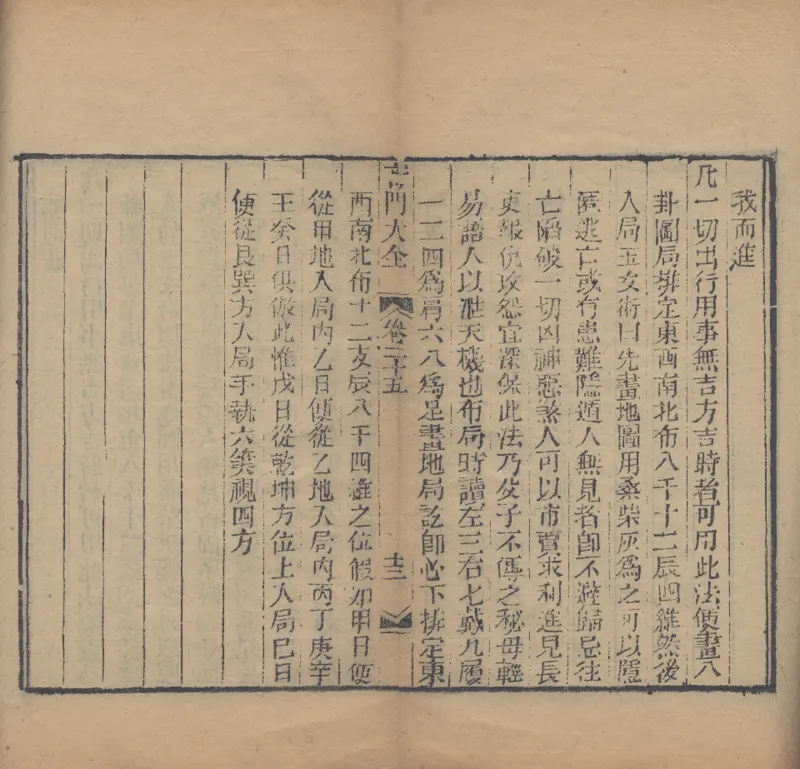 我而進
凡一切出行用事無吉方吉時者可用此法便畫八
卦圖局排定東西南北布八干十二辰四維然後
入局玉女術曰先畫地圖用桑柴灰為之可以隱
匿逃亡或有患難隱遁人無見者卽不避歸忌往
亡隔破一切凶神惡煞人可以市賣求利進見長
吏報仇攻怨宜深保此法乃父子不傳之秘毋輕
易語人以泄天機也布局時讀左三右七戴九履
一二四爲肩六八爲足畫地局訖卽必下排定東
大全 卷二十五 十三
西南北布十二支辰八干四維之位假如甲日便
從甲地入局內乙日便從乙地入局內丙丁庚辛
壬癸日俱倣此惟戊日從乾坤方位上入局巳日
便從艮巽方入局手執六筭視四方